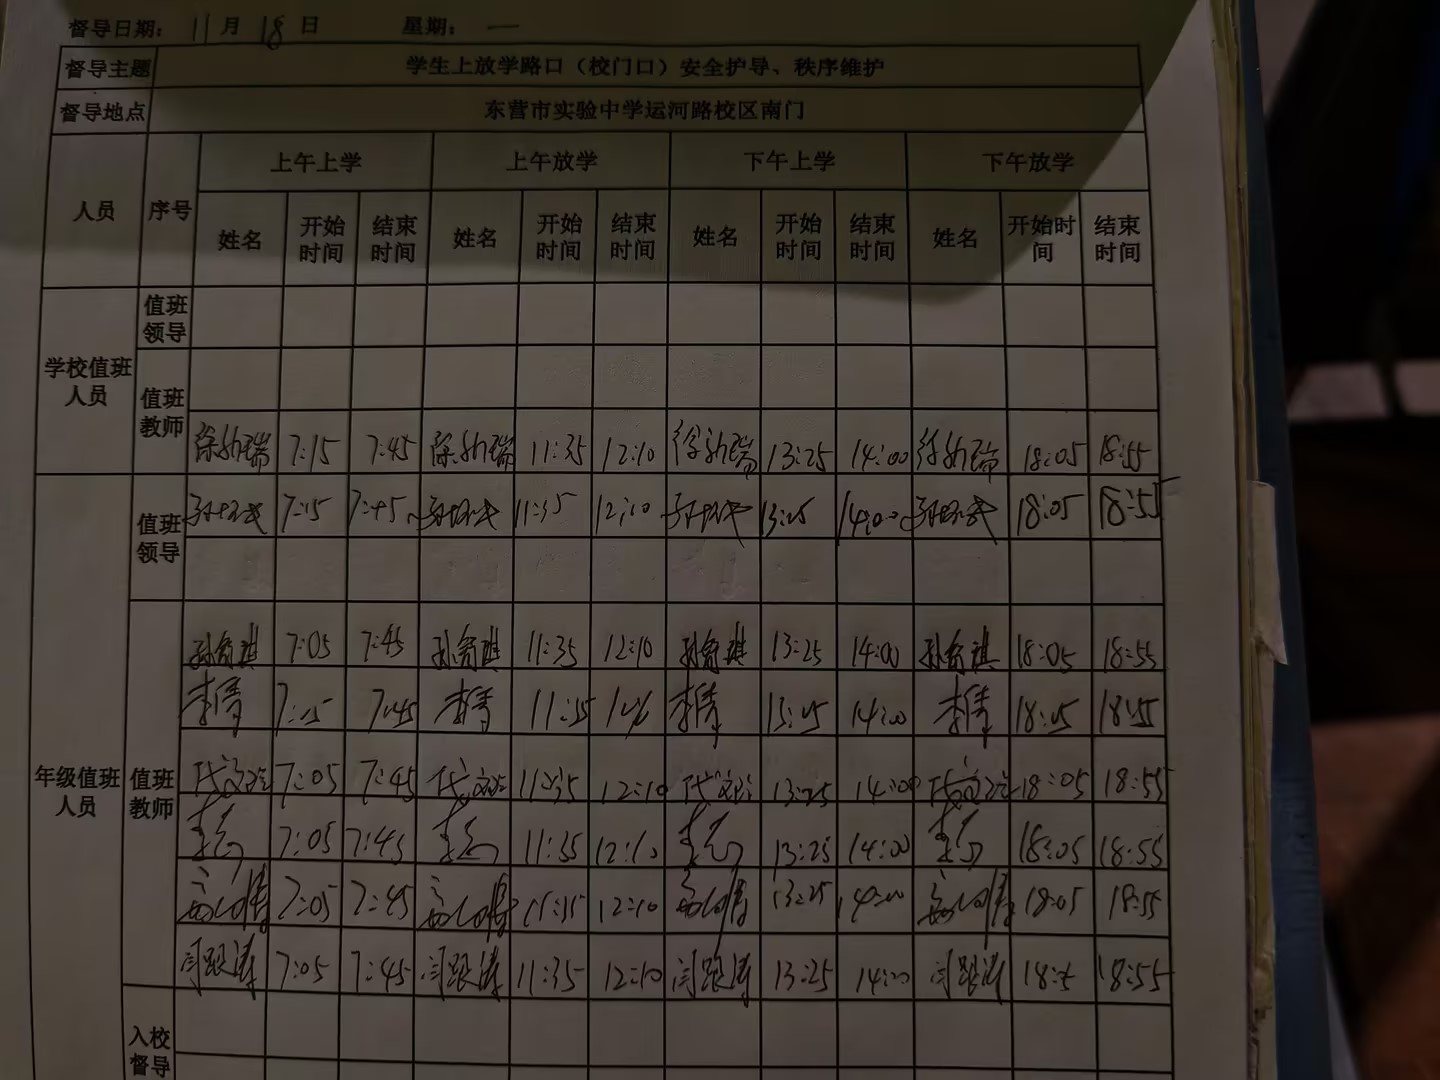 督导日期: 11月18日 星期: 一
督导主题 学生上放学路口（校门口）安全护导、秩序维护
督导地点 东营市实验中学运河路校区南门
人员 序号 上午上学 上午放学 下午上学 下午放学
姓名 开始时间 结束时间 姓名 开始时间 结束时间 姓名 开始时间 结束时间 姓名 开始时间 结束时间
学校值班人员 值班领导
值班教师
徐新瑞 7:15 7:45 徐新瑞 11:35 12:10 徐新瑞 13:25 14:00 徐新瑞 18:05 18:55
年级值班人员 值班领导 7:15 7:45 11:35 12:10 13:25 14:00 18:05 18:55
值班教师
7:05 7:45 11:35 12:10 13:25 14:00 18:05 18:55
李青 7:45 李青 11:35 李青 14:00 李青 18:55
7:05 7:45 11:35 12:10 13:25 14:00 18:05 18:55
7:05 7:45 11:35 12:10 13:25 14:00 18:05 18:55
7:05 7:45 11:35 12:10 13:25 14:00 18:05 18:55
闫跟涛 7:05 7:45 闫跟涛 11:35 12:10 闫跟涛 13:25 14:00 闫跟涛 18:55
入校督导